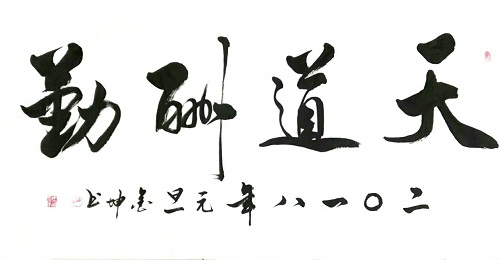 天道酬勤
二〇一八年元旦坤书